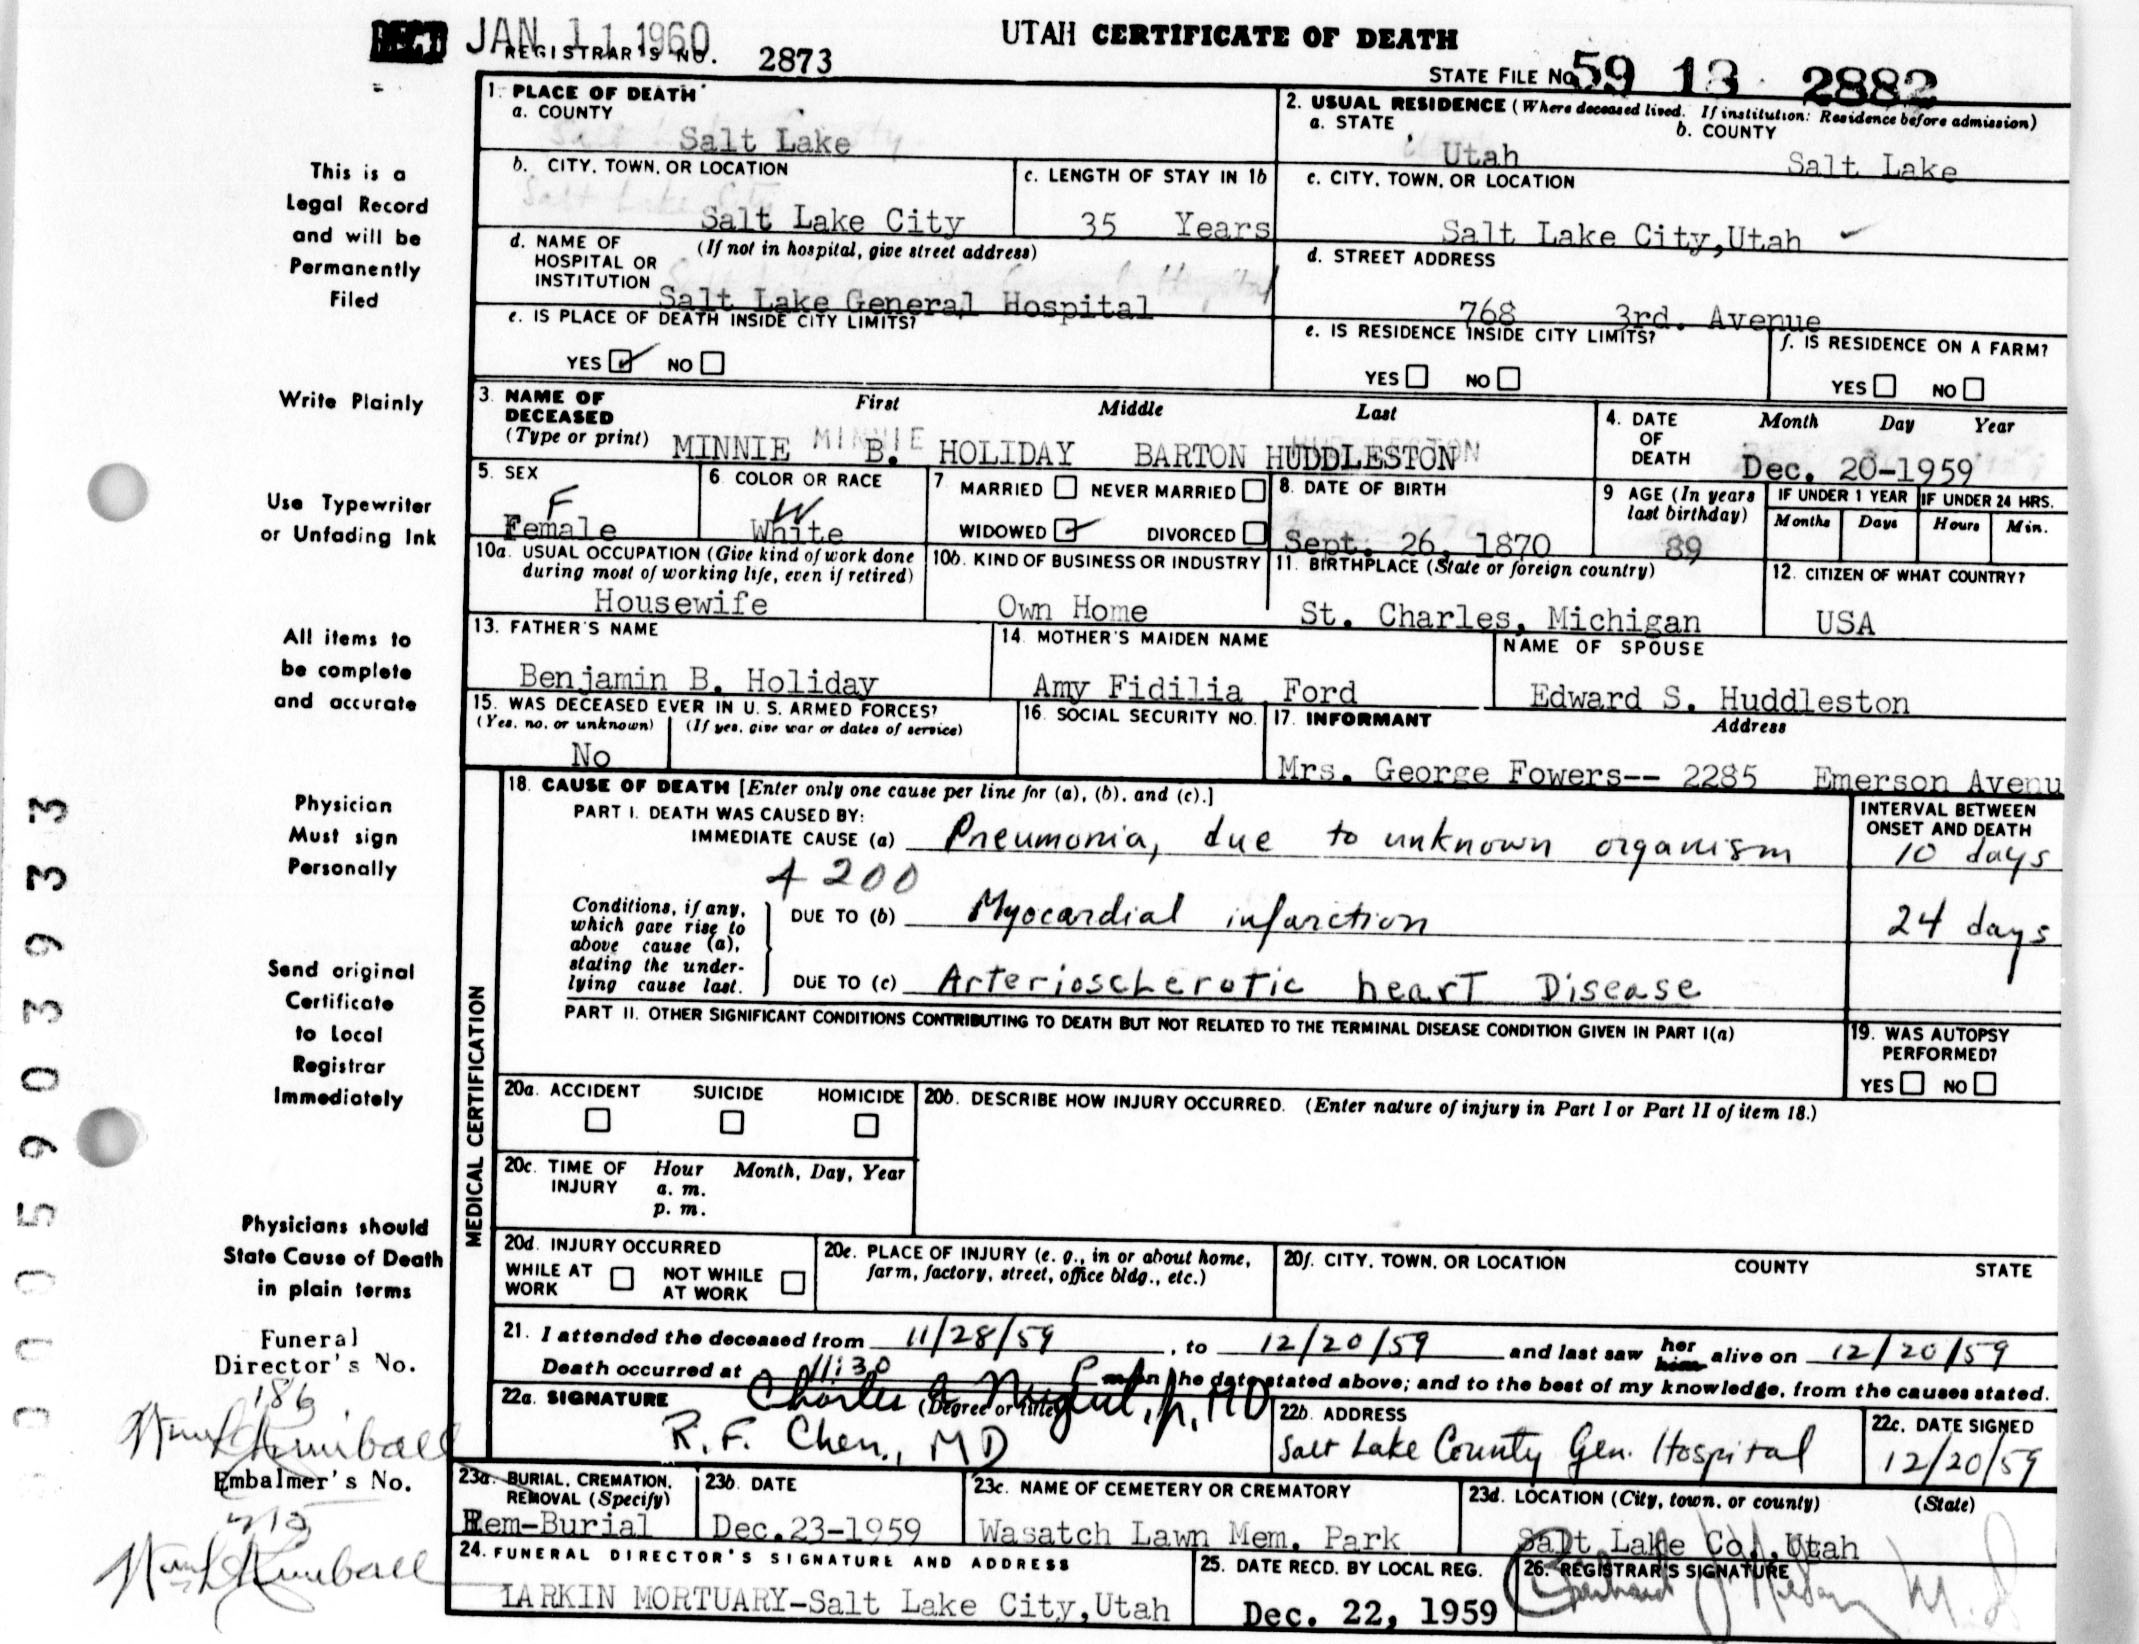 REC'D JAN 11 1960
REGISTRAR'S NO. 2873
UTAH CERTIFICATE OF DEATH
STATE FILE NO. 59 18 2882
1. PLACE OF DEATH
a. COUNTY
Salt Lake
2. USUAL RESIDENCE (Where deceased lived. If institution: Residence before admission)
a. STATE
b. COUNTY
Utah
Salt Lake
b. CITY, TOWN, OR LOCATION
Salt Lake City
c. LENGTH OF STAY IN 1b
35 Years
c. CITY, TOWN, OR LOCATION
Salt Lake City, Utah
d. NAME OF HOSPITAL OR INSTITUTION
(If not in hospital, give street address)
Salt Lake General Hospital
d. STREET ADDRESS
768 3rd. Avenue
e. IS PLACE OF DEATH INSIDE CITY LIMITS?
YES ✓ NO
e. IS RESIDENCE INSIDE CITY LIMITS?
YES NO
f. IS RESIDENCE ON A FARM?
YES NO
3. NAME OF DECEASED (Type or print)
First Middle Last
MINNIE B. HOLIDAY BARTON HUDDLESTON
4. DATE OF DEATH
Month Day Year
Dec. 20-1959
5. SEX
F
Female
6. COLOR OR RACE
W
White
7. MARRIED NEVER MARRIED
WIDOWED ✓ DIVORCED
8. DATE OF BIRTH
Sept. 26, 1870
9 AGE (In years last birthday)
89
IF UNDER 1 YEAR
Months Days
IF UNDER 24 HRS.
Hours Min.
10a. USUAL OCCUPATION (Give kind of work done during most of working life, even if retired)
Housewife
10b. KIND OF BUSINESS OR INDUSTRY
Own Home
11. BIRTHPLACE (State or foreign country)
St. Charles, Michigan
12. CITIZEN OF WHAT COUNTRY?
USA
13. FATHER'S NAME
Benjamin B. Holiday
14. MOTHER'S MAIDEN NAME
Amy Fidilia Ford
NAME OF SPOUSE
Edward S. Huddleston
15. WAS DECEASED EVER IN U. S. ARMED FORCES?
(Yes, no, or unknown) (If yes, give war or dates of service)
No
16. SOCIAL SECURITY NO.
17. INFORMANT
Address
Mrs. George Fowers-- 2285 Emerson Avenu
MEDICAL CERTIFICATION
18. CAUSE OF DEATH [Enter only one cause per line for (a), (b), and (c).]
PART I. DEATH WAS CAUSED BY:
IMMEDIATE CAUSE (a) Pneumonia, due to unknown organism
INTERVAL BETWEEN ONSET AND DEATH
10 days
4200
Conditions, if any, which gave rise to above cause (a), stating the underlying cause last.
DUE TO (b) Myocardial infarction
24 days
DUE TO (c) Arterioschlerotic heart Disease
PART II. OTHER SIGNIFICANT CONDITIONS CONTRIBUTING TO DEATH BUT NOT RELATED TO THE TERMINAL DISEASE CONDITION GIVEN IN PART I(a)
19. WAS AUTOPSY PERFORMED?
YES NO
20a. ACCIDENT SUICIDE HOMICIDE
20b. DESCRIBE HOW INJURY OCCURRED. (Enter nature of injury in Part I or Part II of item 18.)
20c. TIME OF INJURY
Hour Month, Day, Year
a. m.
p. m.
20d. INJURY OCCURRED
WHILE AT WORK NOT WHILE AT WORK
20e. PLACE OF INJURY (e. g., in or about home, farm, factory, street, office bldg., etc.)
20f. CITY, TOWN, OR LOCATION COUNTY STATE
21. I attended the deceased from 11/28/59, to 12/20/59 and last saw her him alive on 12/20/59
Death occurred at 11:30 P m on the date stated above; and to the best of my knowledge, from the causes stated.
22a. SIGNATURE
(Degree or title)
Charles A Nugent, Jr, MD
R. F. Chen, MD
22b. ADDRESS
Salt Lake County Gen. Hospital
22c. DATE SIGNED
12/20/59
23a. BURIAL, CREMATION, REMOVAL (Specify)
Rem-Burial
23b. DATE
Dec. 23-1959
23c. NAME OF CEMETERY OR CREMATORY
Wasatch Lawn Mem. Park
23d. LOCATION (City, town, or county) (State)
Salt Lake Co., Utah
24. FUNERAL DIRECTOR'S SIGNATURE AND ADDRESS
LARKIN MORTUARY-Salt Lake City, Utah
25. DATE RECD. BY LOCAL REG.
Dec. 22, 1959
26. REGISTRAR'S SIGNATURE
This is a
Legal Record
and will be
Permanently
Filed
Write Plainly
Use Typewriter
or Unfading Ink
All items to
be complete
and accurate
Physician
Must sign
Personally
Send original
Certificate
to Local
Registrar
Immediately
Physicians should
State Cause of Death
in plain terms
Funeral
Director's No.
186
Kimball
Embalmer's No.
Kimball
0005903933